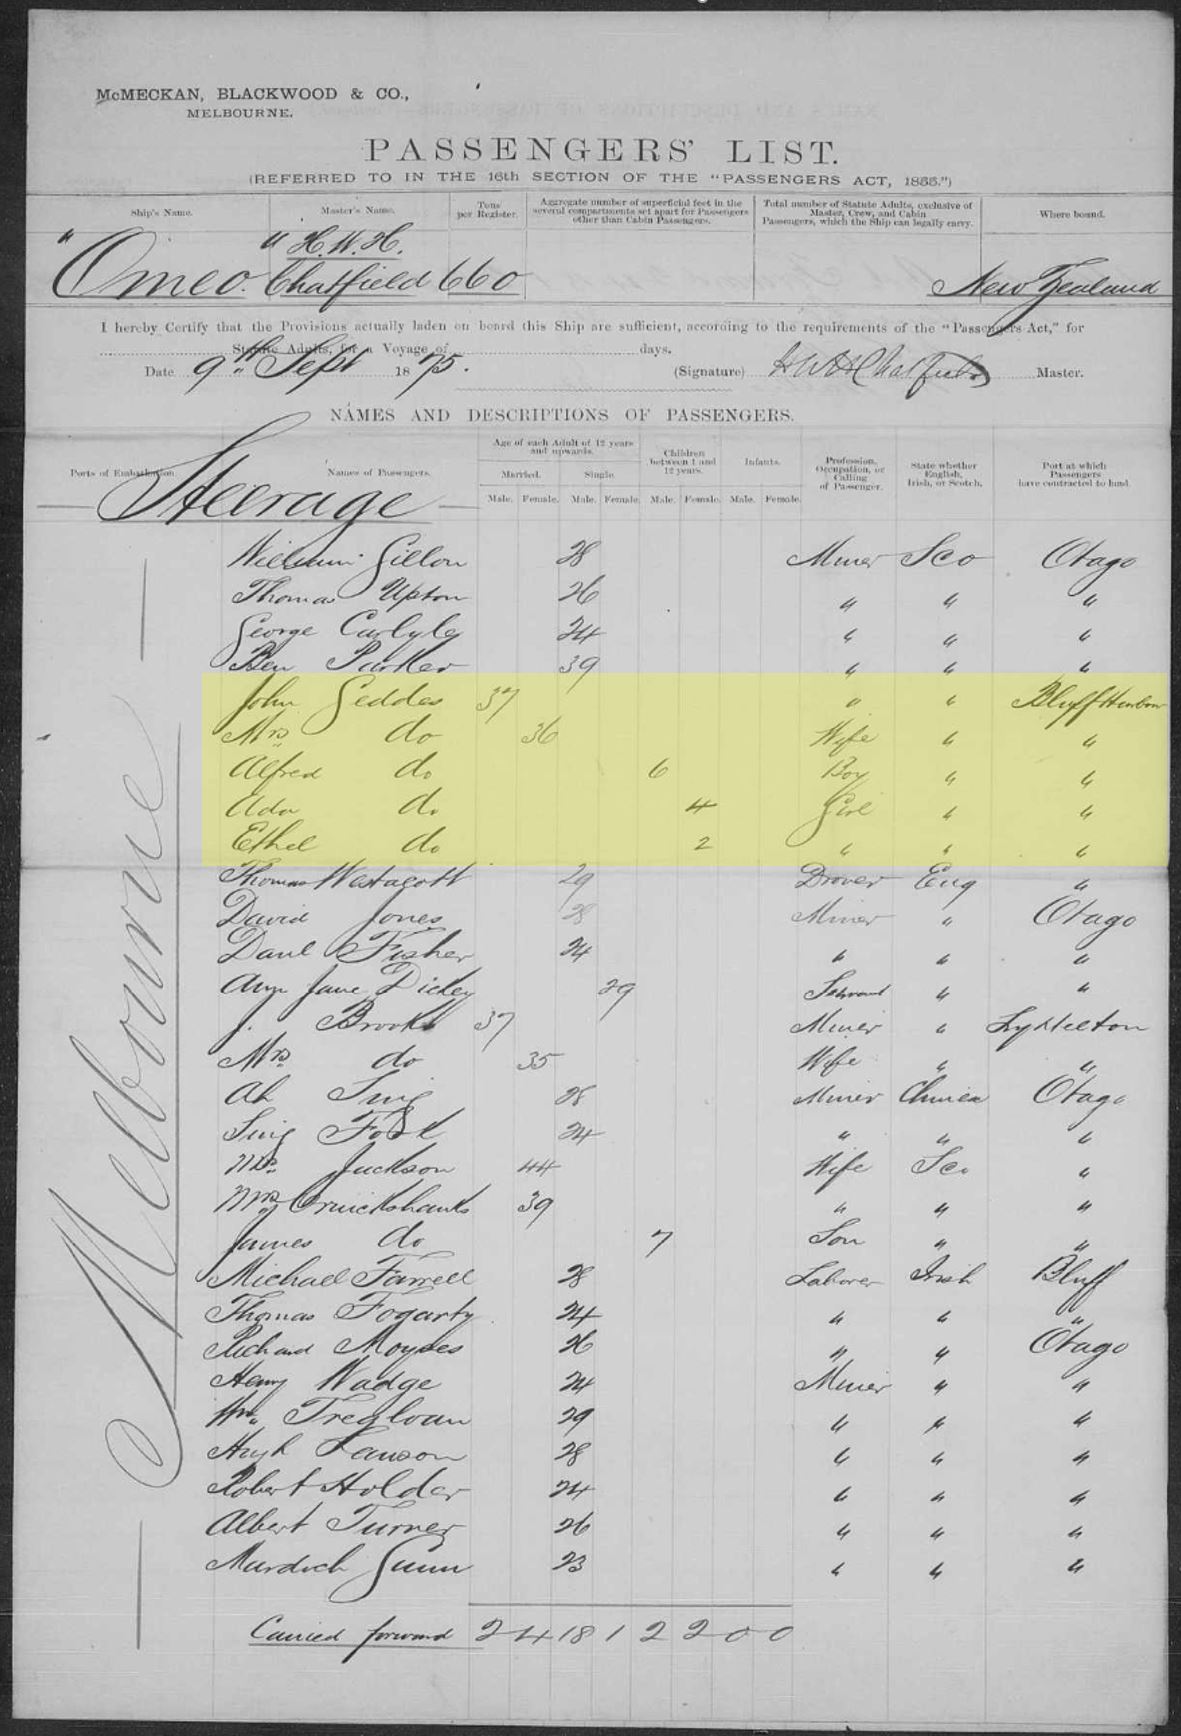 McMECKAN, BLACKWOOD & CO.,
MELBOURNE.
PASSENGERS' LIST.
(REFERRED TO IN THE 16th SECTION OF THE "PASSENGERS ACT, 1855.")
Ship's Name. Master's Name. Tons per Register. Aggregate number of superficial feet in the several compartments set apart for Passengers other than Cabin Passengers. Total number of Statute Adults, exclusive of Master, Crew, and Cabin Passengers, which the Ship can legally carry. Where bound.
"Omeo" H. W. H. Chatfield 660 New Zealand
I hereby Certify that the Provisions actually laden on board this Ship are sufficient, according to the requirements of the "Passengers Act," for
Statute Adults, for a Voyage of days.
Date 9th Sept 1875. (Signature) H W H Chatfield Master.
NAMES AND DESCRIPTIONS OF PASSENGERS.
Ports of Embarkation Names of Passengers. Age of each Adult of 12 years and upwards. Married. Single. Children between 1 and 12 years. Infants. Profession, Occupation, or Calling of Passenger. State whether English, Irish, or Scotch. Port at which Passengers have contracted to land.
Male. Female. Male. Female. Male. Female. Male. Female.
Steerage
Melbourne
William Gillon 28 Miner Sco Otago
Thomas Upton 26 " " "
George Carlyle 24 " " "
Ben Parker 39 " " "
John Geddes 37 " " Bluff Harbour
Mrs do 36 Wife " "
Alfred do 6 Boy " "
Ada do 4 Girl " "
Ethel do 2 " " "
Thomas Westacott 29 Drover Eng "
David Jones 28 Miner " Otago
Danl Fisher 24 " " "
Ann Jane Dickey 29 Servant " "
J. Brooks 37 Miner " Lyttelton
Mrs do 35 Wife " "
Ah Sing 28 Miner Chinea Otago
Sing Fook 24 " " "
Mrs Jackson 44 Wife Sco "
Mrs Cruickshanks 39 " " "
James do 7 Son " "
Michael Farrell 28 Laborer Irish Bluff
Thomas Fogarty 24 " " "
Richard Moyses 26 " " Otago
Henry Wadge 24 Miner " "
Wm Tregloan 29 " " "
Hugh Lawson 28 " " "
Robert Holder 24 " " "
Albert Turner 26 " " "
Murdoch Gunn 23 " " "
Carried forward 2 4 18 1 2 2 0 0